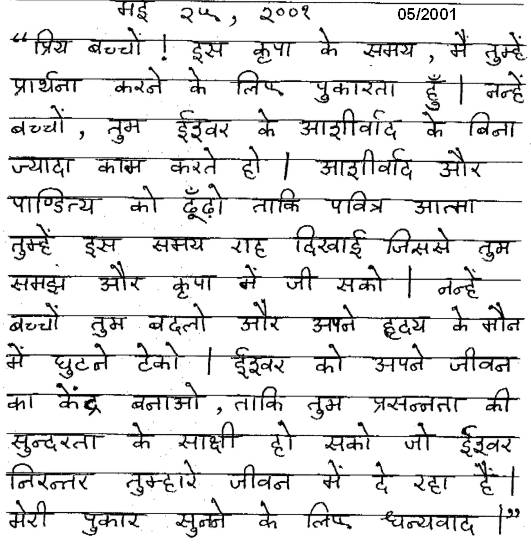 मई २५, २००१ 05/2001
“प्रिय बच्चों! इस कृपा के समय, मैं तुम्हें
प्रार्थना करने के लिए पुकारता हुँ| नन्हें
बच्चों, तुम ईश्वर के आशीर्वाद के बिना
ज्यादा काम करते हो| आशीर्वाद और
पाण्डित्य को ढूँढ़ो ताकि पवित्र आत्मा
तुम्हें इस समय राह दिखाई जिससे तुम
समझं और कृपा में जी सको| नन्हें
बच्चों तुम बदलो और अपने हृदय के मौन
में घुटने टेको| ईश्वर को अपने जीवन
का केंद्र बनाओ, ताकि तुम प्रसन्नता की
सुन्दरता के साक्षी हो सको जो ईश्वर
निरन्तर तुम्हारे जीवन में दे रहा हैं|
मेरी पुकार सुनने के लिए धन्यवाद|”